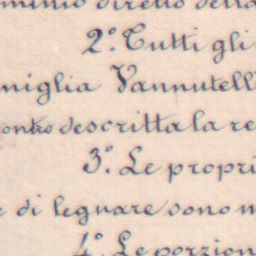 diretto della
2.° Tutti gli
miglia Vannutell
descritta la re
3.° Le propri
e di legnare sono
4.° Le porzion